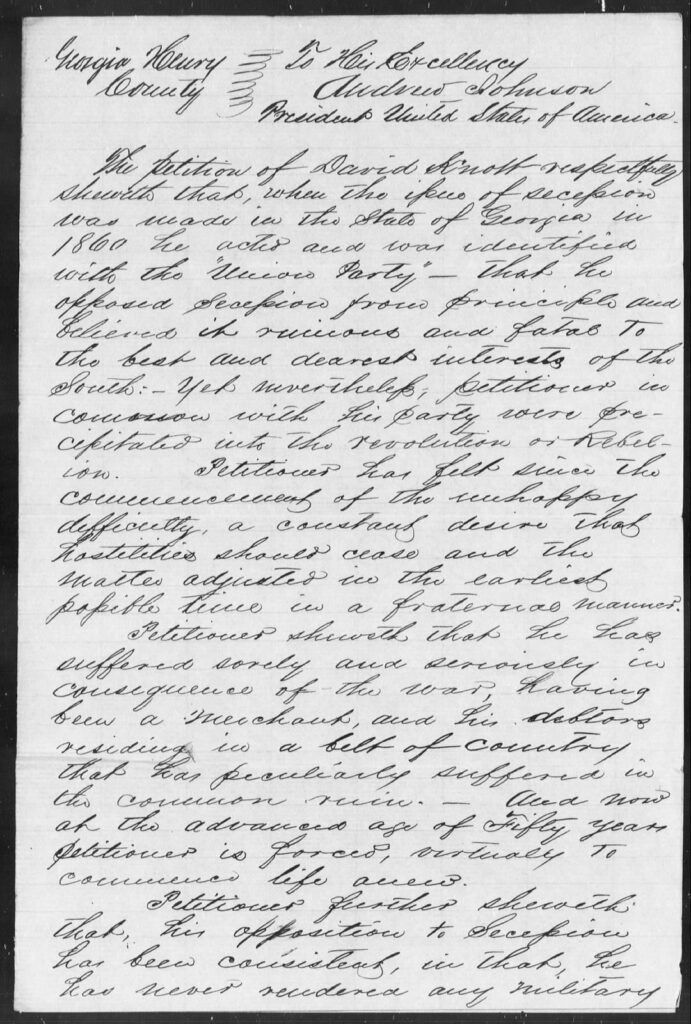 Georgia Henry
County
To His Excellency
Andrew Johnson
President United States of America.
The Petition of David Knott respectfully
sheweth that, when the issue of secession
was made in the State of Georgia in
1860 he acted and was identified
with the "Union Party" — that he
opposed Secession from principle and
believed it ruinous and fatal to
the best and dearest interests of the
South: — Yet nevertheless, petitioner in
common with his party were pre-
cipitated into the revolution or Rebel-
ion. Petitioner has felt since the
commencement of the unhappy
difficulty, a constant desire that
hostilities should cease and the
matter adjusted in the earliest
possible time in a fraternal manner.
Petitioner sheweth that he has
suffered sorely and seriously in
consequence of the war, having
been a Merchant, and his debtors
residing in a belt of country
that has peculiarly suffered in
the common ruin. — And now
at the advanced age of Fifty years
petitioner is forced, virtualy to
commence life anew.
Petitioner further sheweth
that, his opposition to Secession
has been consistent, in that, he
has never rendered any military